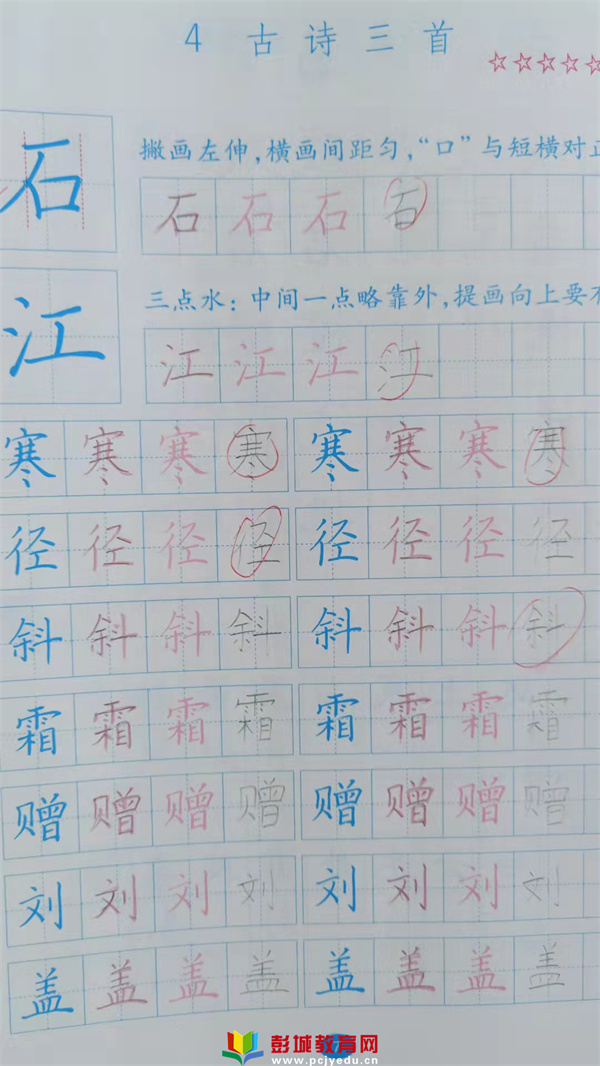 4 古诗三首
☆☆☆☆☆
撇画左伸，横画间距匀，“口”与短横对正
石 石 石 石 石
三点水：中间一点略靠外，提画向上要有
江 江 江 江 江
寒 寒 寒 寒 寒 寒 寒 寒
径 径 径 径 径 径 径 径
斜 斜 斜 斜 斜 斜 斜 斜
霜 霜 霜 霜 霜 霜 霜 霜
赠 赠 赠 赠 赠 赠 赠 赠
刘 刘 刘 刘 刘 刘 刘 刘
盖 盖 盖 盖 盖 盖 盖 盖
彭城教育网
www.pcjyedu.cn